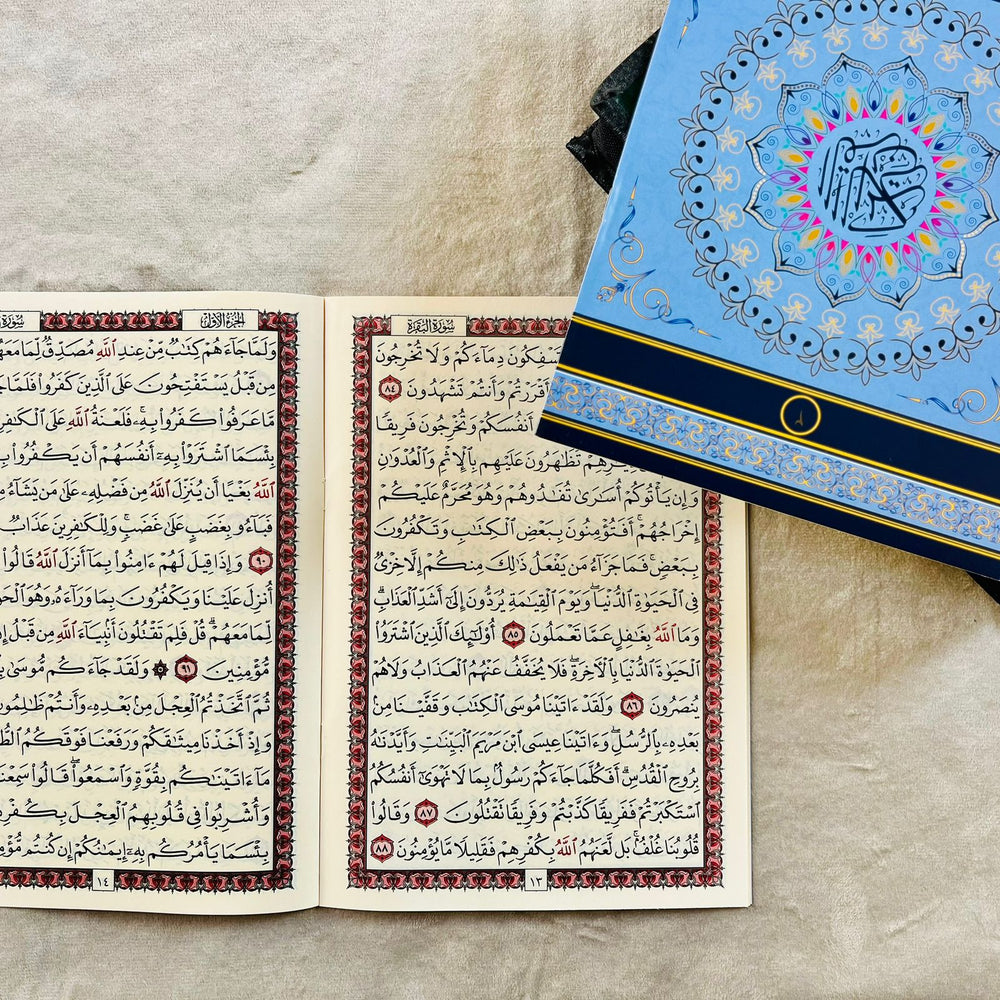 سُورَةُ البَقَرَةِ
تَسْفِكُونَ دِمَآءَكُمْ وَلَا تُخْرِجُونَ
أَقْرَرْتُمْ وَأَنتُمْ تَشْهَدُونَ ٨٤
أَنفُسَكُمْ وَتُخْرِجُونَ فَرِيقًا
دِيَٰرِهِمْ تَظَٰهَرُونَ عَلَيْهِم بِٱلْإِثْمِ وَٱلْعُدْوَٰنِ
وَإِن يَأْتُوكُمْ أُسَٰرَىٰ تُفَٰدُوهُمْ وَهُوَ مُحَرَّمٌ عَلَيْكُمْ
إِخْرَاجُهُمْ ۚ أَفَتُؤْمِنُونَ بِبَعْضِ ٱلْكِتَٰبِ وَتَكْفُرُونَ
بِبَعْضٍ ۚ فَمَا جَزَآءُ مَن يَفْعَلُ ذَٰلِكَ مِنكُمْ إِلَّا خِزْىٌ
فِى ٱلْحَيَوٰةِ ٱلدُّنْيَا ۖ وَيَوْمَ ٱلْقِيَٰمَةِ يُرَدُّونَ إِلَىٰٓ أَشَدِّ ٱلْعَذَابِ ۗ
وَمَا ٱللَّهُ بِغَٰفِلٍ عَمَّا تَعْمَلُونَ ٨٥ أُو۟لَٰٓئِكَ ٱلَّذِينَ ٱشْتَرَوُا۟
ٱلْحَيَوٰةَ ٱلدُّنْيَا بِٱلْءَاخِرَةِ ۖ فَلَا يُخَفَّفُ عَنْهُمُ ٱلْعَذَابُ وَلَا هُمْ
يُنصَرُونَ ٨٦ وَلَقَدْ ءَاتَيْنَا مُوسَى ٱلْكِتَٰبَ وَقَفَّيْنَا مِنۢ
بَعْدِهِۦ بِٱلرُّسُلِ ۖ وَءَاتَيْنَا عِيسَى ٱبْنَ مَرْيَمَ ٱلْبَيِّنَٰتِ وَأَيَّدْنَٰهُ
بِرُوحِ ٱلْقُدُسِ ۗ أَفَكُلَّمَا جَآءَكُمْ رَسُولٌۢ بِمَا لَا تَهْوَىٰٓ أَنفُسُكُمُ
ٱسْتَكْبَرْتُمْ فَفَرِيقًا كَذَّبْتُمْ وَفَرِيقًا تَقْتُلُونَ ٨٧ وَقَالُوا۟
قُلُوبُنَا غُلْفٌۢ ۚ بَل لَّعَنَهُمُ ٱللَّهُ بِكُفْرِهِمْ فَقَلِيلًا مَّا يُؤْمِنُونَ ٨٨
١٣
الجُزْءُ الأَوَّلُ
سُورَةُ
وَلَمَّا جَآءَهُمْ كِتَٰبٌ مِّنْ عِندِ ٱللَّهِ مُصَدِّقٌ لِّمَا مَعَهُ
مِن قَبْلُ يَسْتَفْتِحُونَ عَلَى ٱلَّذِينَ كَفَرُوا۟ فَلَمَّا جَا
مَّا عَرَفُوا۟ كَفَرُوا۟ بِهِۦ ۚ فَلَعْنَةُ ٱللَّهِ عَلَى ٱلْكَٰفِر
بِئْسَمَا ٱشْتَرَوْا۟ بِهِۦٓ أَنفُسَهُمْ أَن يَكْفُرُوا۟ بِ
ٱللَّهُ بَغْيًا أَن يُنَزِّلَ ٱللَّهُ مِن فَضْلِهِۦ عَلَىٰ مَن يَشَآءُ مِ
فَبَآءُو بِغَضَبٍ عَلَىٰ غَضَبٍ ۚ وَلِلْكَٰفِرِينَ عَذَابٌ
٩٠ وَإِذَا قِيلَ لَهُمْ ءَامِنُوا۟ بِمَآ أَنزَلَ ٱللَّهُ قَالُوا۟
أُنزِلَ عَلَيْنَا وَيَكْفُرُونَ بِمَا وَرَآءَهُۥ وَهُوَ ٱلْحَقُّ
لِّمَا مَعَهُمْ ۗ قُلْ فَلِمَ تَقْتُلُونَ أَنۢبِيَآءَ ٱللَّهِ مِن قَبْلُ إِن
مُّؤْمِنِينَ ٩١ ۞ وَلَقَدْ جَآءَكُم مُّوسَىٰ بِ
ثُمَّ ٱتَّخَذْتُمُ ٱلْعِجْلَ مِنۢ بَعْدِهِۦ وَأَنتُمْ ظَٰلِمُونَ
وَإِذْ أَخَذْنَا مِيثَٰقَكُمْ وَرَفَعْنَا فَوْقَكُمُ ٱلطُّ
مَآ ءَاتَيْنَٰكُم بِقُوَّةٍ وَٱسْمَعُوا۟ ۖ قَالُوا۟ سَمِعْنَا
وَأُشْرِبُوا۟ فِى قُلُوبِهِمُ ٱلْعِجْلَ بِكُفْرِ
بِئْسَمَا يَأْمُرُكُم بِهِۦٓ إِيمَٰنُكُمْ إِن كُنتُم مُّؤْمِ
١٤